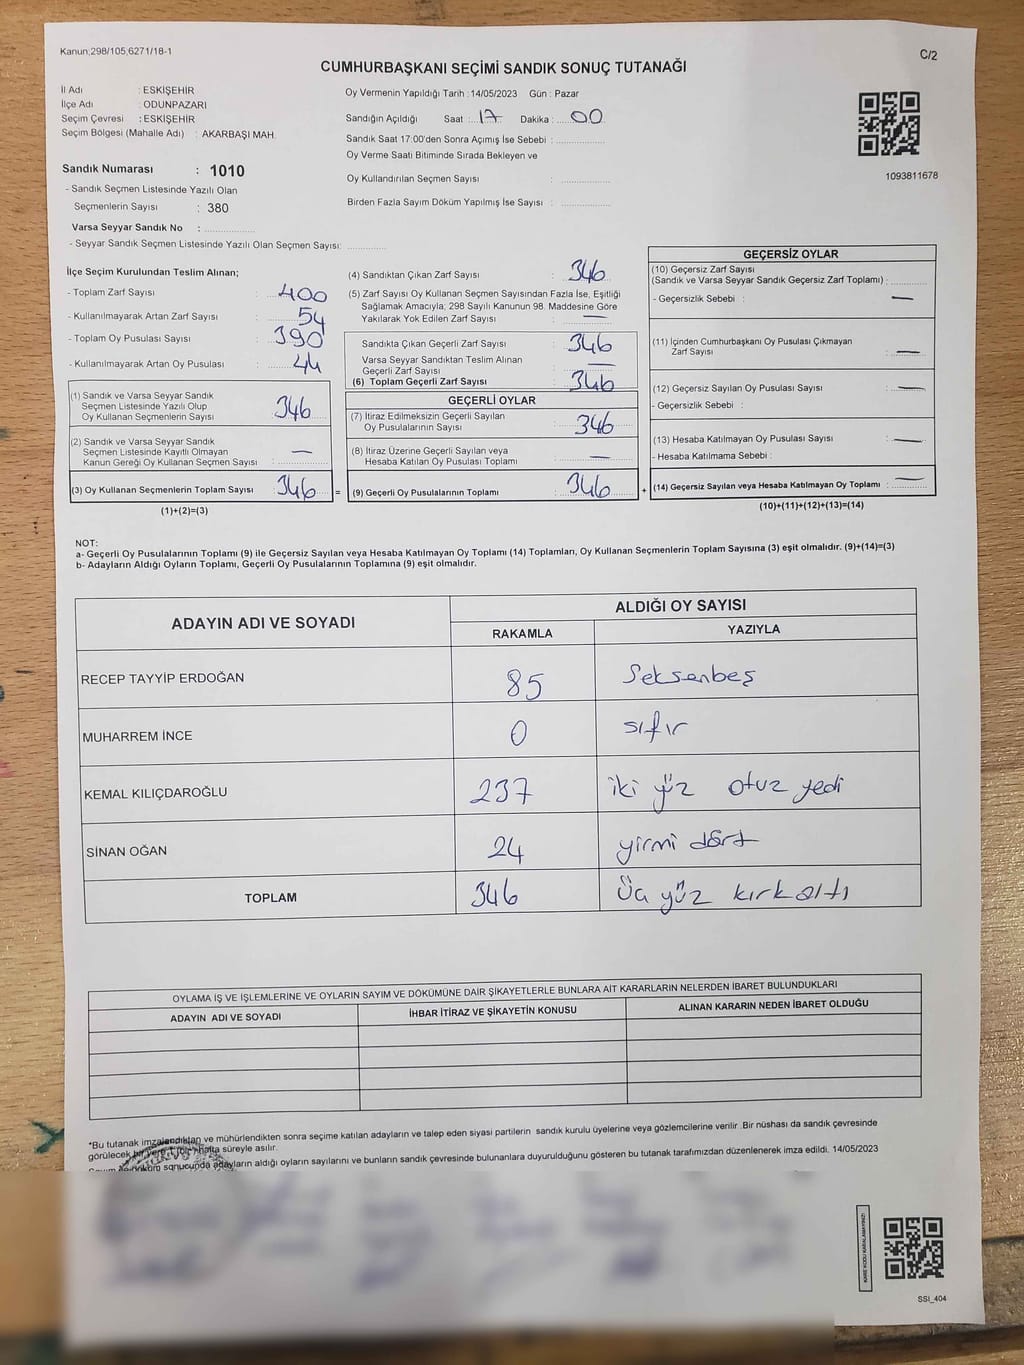 Kanun;298/105,6271/18-1
C/2
CUMHURBAŞKANI SEÇİMİ SANDIK SONUÇ TUTANAĞI
İl Adı : ESKİŞEHİR
İlçe Adı : ODUNPAZARI
Seçim Çevresi : ESKİŞEHİR
Seçim Bölgesi (Mahalle Adı) : AKARBAŞI MAH.
Oy Vermenin Yapıldığı Tarih : 14/05/2023 Gün : Pazar
Sandığın Açıldığı Saat : 17 Dakika : 00
Sandık Saat 17:00'den Sonra Açılmış İse Sebebi :
Oy Verme Saati Bitiminde Sırada Bekleyen ve
Oy Kullandırılan Seçmen Sayısı :
Birden Fazla Sayım Döküm Yapılmış İse Sayısı :
1093811678
Sandık Numarası : 1010
- Sandık Seçmen Listesinde Yazılı Olan
Seçmenlerin Sayısı : 380
Varsa Seyyar Sandık No :
- Seyyar Sandık Seçmen Listesinde Yazılı Olan Seçmen Sayısı:
İlçe Seçim Kurulundan Teslim Alınan;
- Toplam Zarf Sayısı : 400
- Kullanılmayarak Artan Zarf Sayısı : 54
- Toplam Oy Pusulası Sayısı : 390
- Kullanılmayarak Artan Oy Pusulası : 44
(1) Sandık ve Varsa Seyyar Sandık
Seçmen Listesinde Yazılı Olup
Oy Kullanan Seçmenlerin Sayısı : 346
(2) Sandık ve Varsa Seyyar Sandık
Seçmen Listesinde Kayıtlı Olmayan
Kanun Gereği Oy Kullanan Seçmen Sayısı : —
(3) Oy Kullanan Seçmenlerin Toplam Sayısı : 346
(1)+(2)=(3)
(4) Sandıktan Çıkan Zarf Sayısı : 346
(5) Zarf Sayısı Oy Kullanan Seçmen Sayısından Fazla İse, Eşitliği
Sağlamak Amacıyla; 298 Sayılı Kanunun 98. Maddesine Göre
Yakılarak Yok Edilen Zarf Sayısı : —
Sandıkta Çıkan Geçerli Zarf Sayısı : 346
Varsa Seyyar Sandıktan Teslim Alınan
Geçerli Zarf Sayısı : —
(6) Toplam Geçerli Zarf Sayısı : 346
GEÇERLİ OYLAR
(7) İtiraz Edilmeksizin Geçerli Sayılan
Oy Pusulalarının Sayısı : 346
(8) İtiraz Üzerine Geçerli Sayılan veya
Hesaba Katılan Oy Pusulası Toplamı : —
= (9) Geçerli Oy Pusulalarının Toplamı : 346
GEÇERSİZ OYLAR
(10) Geçersiz Zarf Sayısı
(Sandık ve Varsa Seyyar Sandık Geçersiz Zarf Toplamı) :
- Geçersizlik Sebebi : —
(11) İçinden Cumhurbaşkanı Oy Pusulası Çıkmayan
Zarf Sayısı : —
(12) Geçersiz Sayılan Oy Pusulası Sayısı : —
- Geçersizlik Sebebi :
(13) Hesaba Katılmayan Oy Pusulası Sayısı : —
- Hesaba Katılmama Sebebi :
+ (14) Geçersiz Sayılan veya Hesaba Katılmayan Oy Toplamı : —
(10)+(11)+(12)+(13)=(14)
NOT:
a- Geçerli Oy Pusulalarının Toplamı (9) ile Geçersiz Sayılan veya Hesaba Katılmayan Oy Toplamı (14) Toplamları, Oy Kullanan Seçmenlerin Toplam Sayısına (3) eşit olmalıdır. (9)+(14)=(3)
b- Adayların Aldığı Oyların Toplamı, Geçerli Oy Pusulalarının Toplamına (9) eşit olmalıdır.
ADAYIN ADI VE SOYADI
ALDIĞI OY SAYISI
RAKAMLA YAZIYLA
RECEP TAYYİP ERDOĞAN 85 Seksenbeş
MUHARREM İNCE 0 sıfır
KEMAL KILIÇDAROĞLU 237 iki yüz otuz yedi
SİNAN OĞAN 24 yirmi dört
TOPLAM 346 Üç yüz kırkaltı
OYLAMA İŞ VE İŞLEMLERİNE VE OYLARIN SAYIM VE DÖKÜMÜNE DAİR ŞİKAYETLERLE BUNLARA AİT KARARLARIN NELERDEN İBARET BULUNDUKLARI
ADAYIN ADI VE SOYADI İHBAR İTİRAZ VE ŞİKAYETİN KONUSU ALINAN KARARIN NEDEN İBARET OLDUĞU
*Bu tutanak imzalandıktan ve mühürlendikten sonra seçime katılan adayların ve talep eden siyasi partilerin sandık kurulu üyelerine veya gözlemcilerine verilir .Bir nüshası da sandık çevresinde
görülecek bir yere 1 (bir) hafta süreyle asılır.
Sayım döküm sonucunda adayların aldığı oyların sayılarını ve bunların sandık çevresinde bulunanlara duyurulduğunu gösteren bu tutanak tarafımızdan düzenlenerek imza edildi. 14/05/2023
KARE KODU KARALAMAYINIZ!
SSI_404